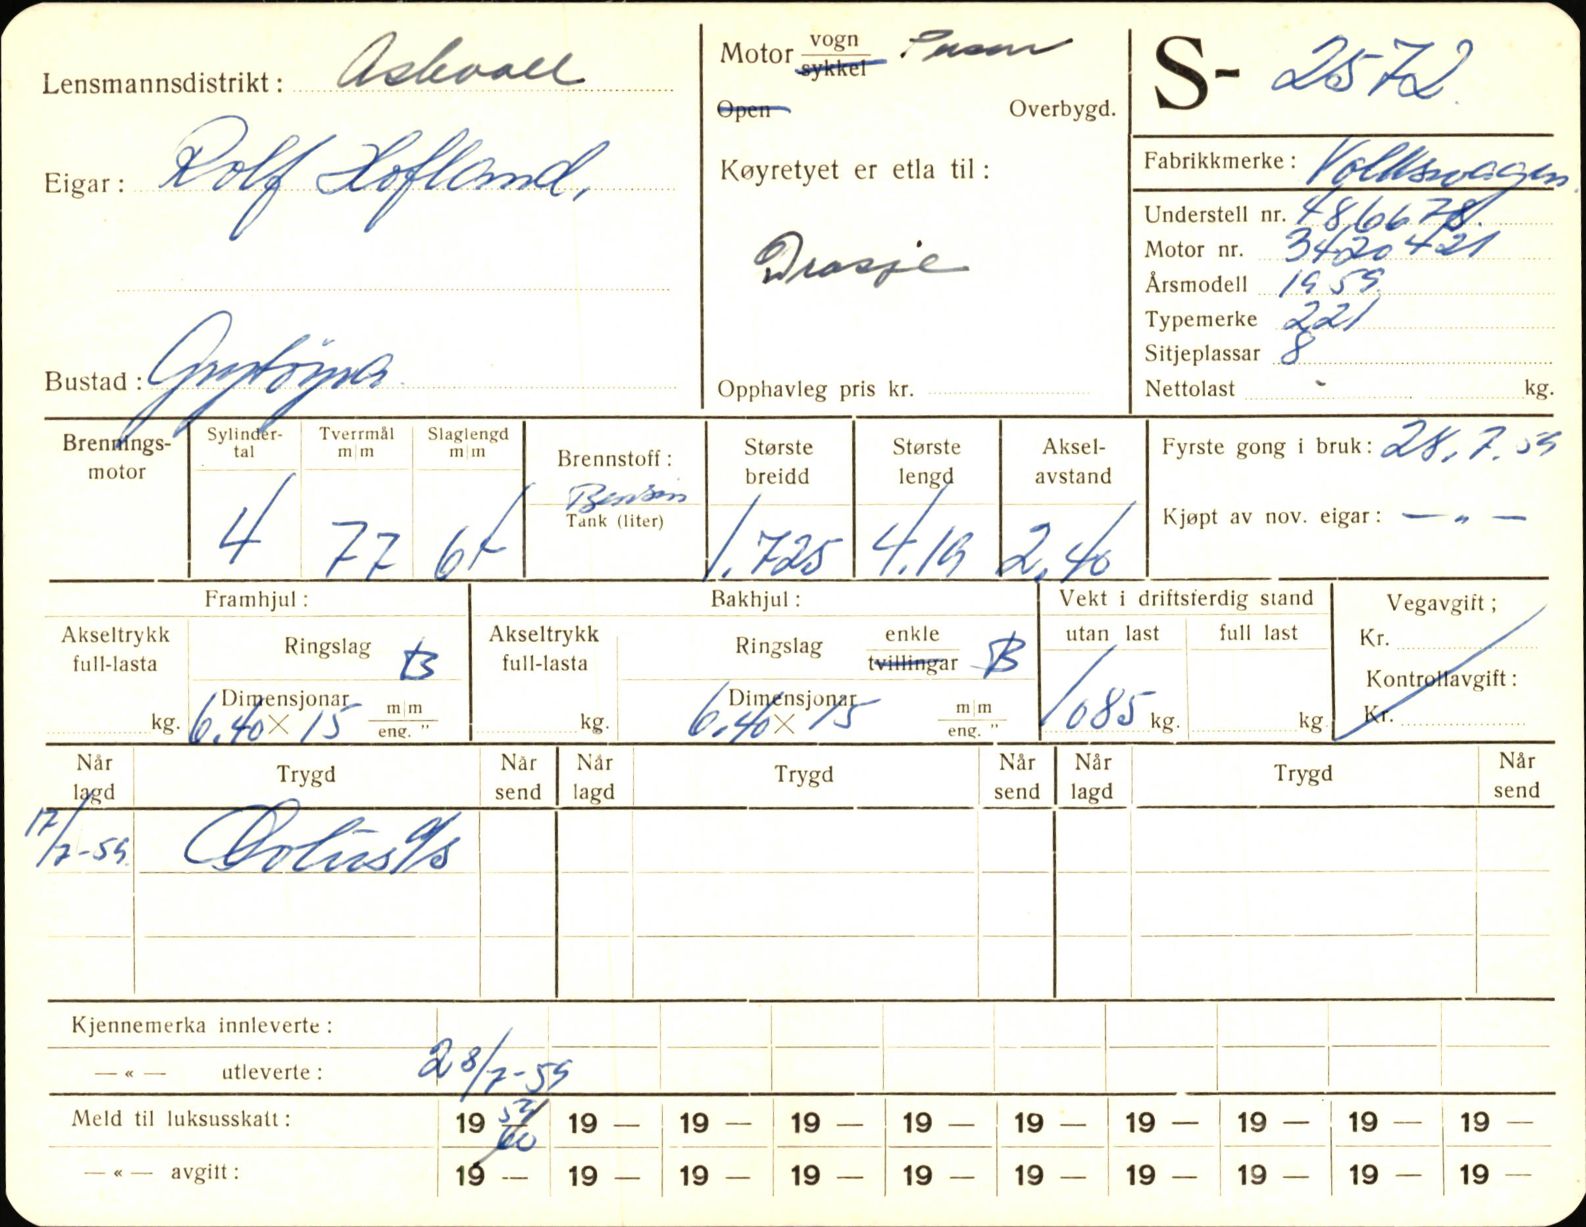 Lensmannsdistrikt: Askvoll
Eigar: Rolf Hofland,
Bustad: Grytöyra
Motor vogn Person
sykkel
Open Overbygd.
Køyretyet er etla til:
Drosje
Opphavleg pris kr.
S- 2572
Fabrikkmerke: Volkswagen
Understell nr. 486678
Motor nr. 3420421
Årsmodell 1959
Typemerke 221
Sitjeplassar 8
Nettolast - kg.
Brennings-
motor
Sylinder-
tal
4
Tverrmål
m|m
77
Slaglengd
m|m
64
Brennstoff:
Bensin
Tank (liter)
Største
breidd
1.725
Største
lengd
4.19
Aksel-
avstand
2.40
Fyrste gong i bruk: 28.7.59
Kjøpt av nov. eigar: — " —
Framhjul:
Akseltrykk
full-lasta
kg.
Ringslag B
Dimensjonar
6.40 × 15 m|m
eng. "
Bakhjul:
Akseltrykk
full-lasta
kg.
Ringslag enkle
tvillingar B
Dimensjonar
6.40 × 15 m|m
eng. "
Vekt i driftsferdig stand
utan last full last
1085 kg. kg
Vegavgift;
Kr.
Kontrollavgift:
Kr.
Når
lagd Trygd Når
send Når
lagd Trygd Når
send Når
lagd Trygd Når
send
17/7-59
Kjennemerka innleverte:
— « — utleverte: 28/7-59
Meld til luksusskatt: 19 59/60 19 — 19 — 19 — 19 — 19 — 19 — 19 — 19 — 19 —
— « — avgift: 19 — 19 — 19 — 19 — 19 — 19 — 19 — 19 — 19 — 19 —